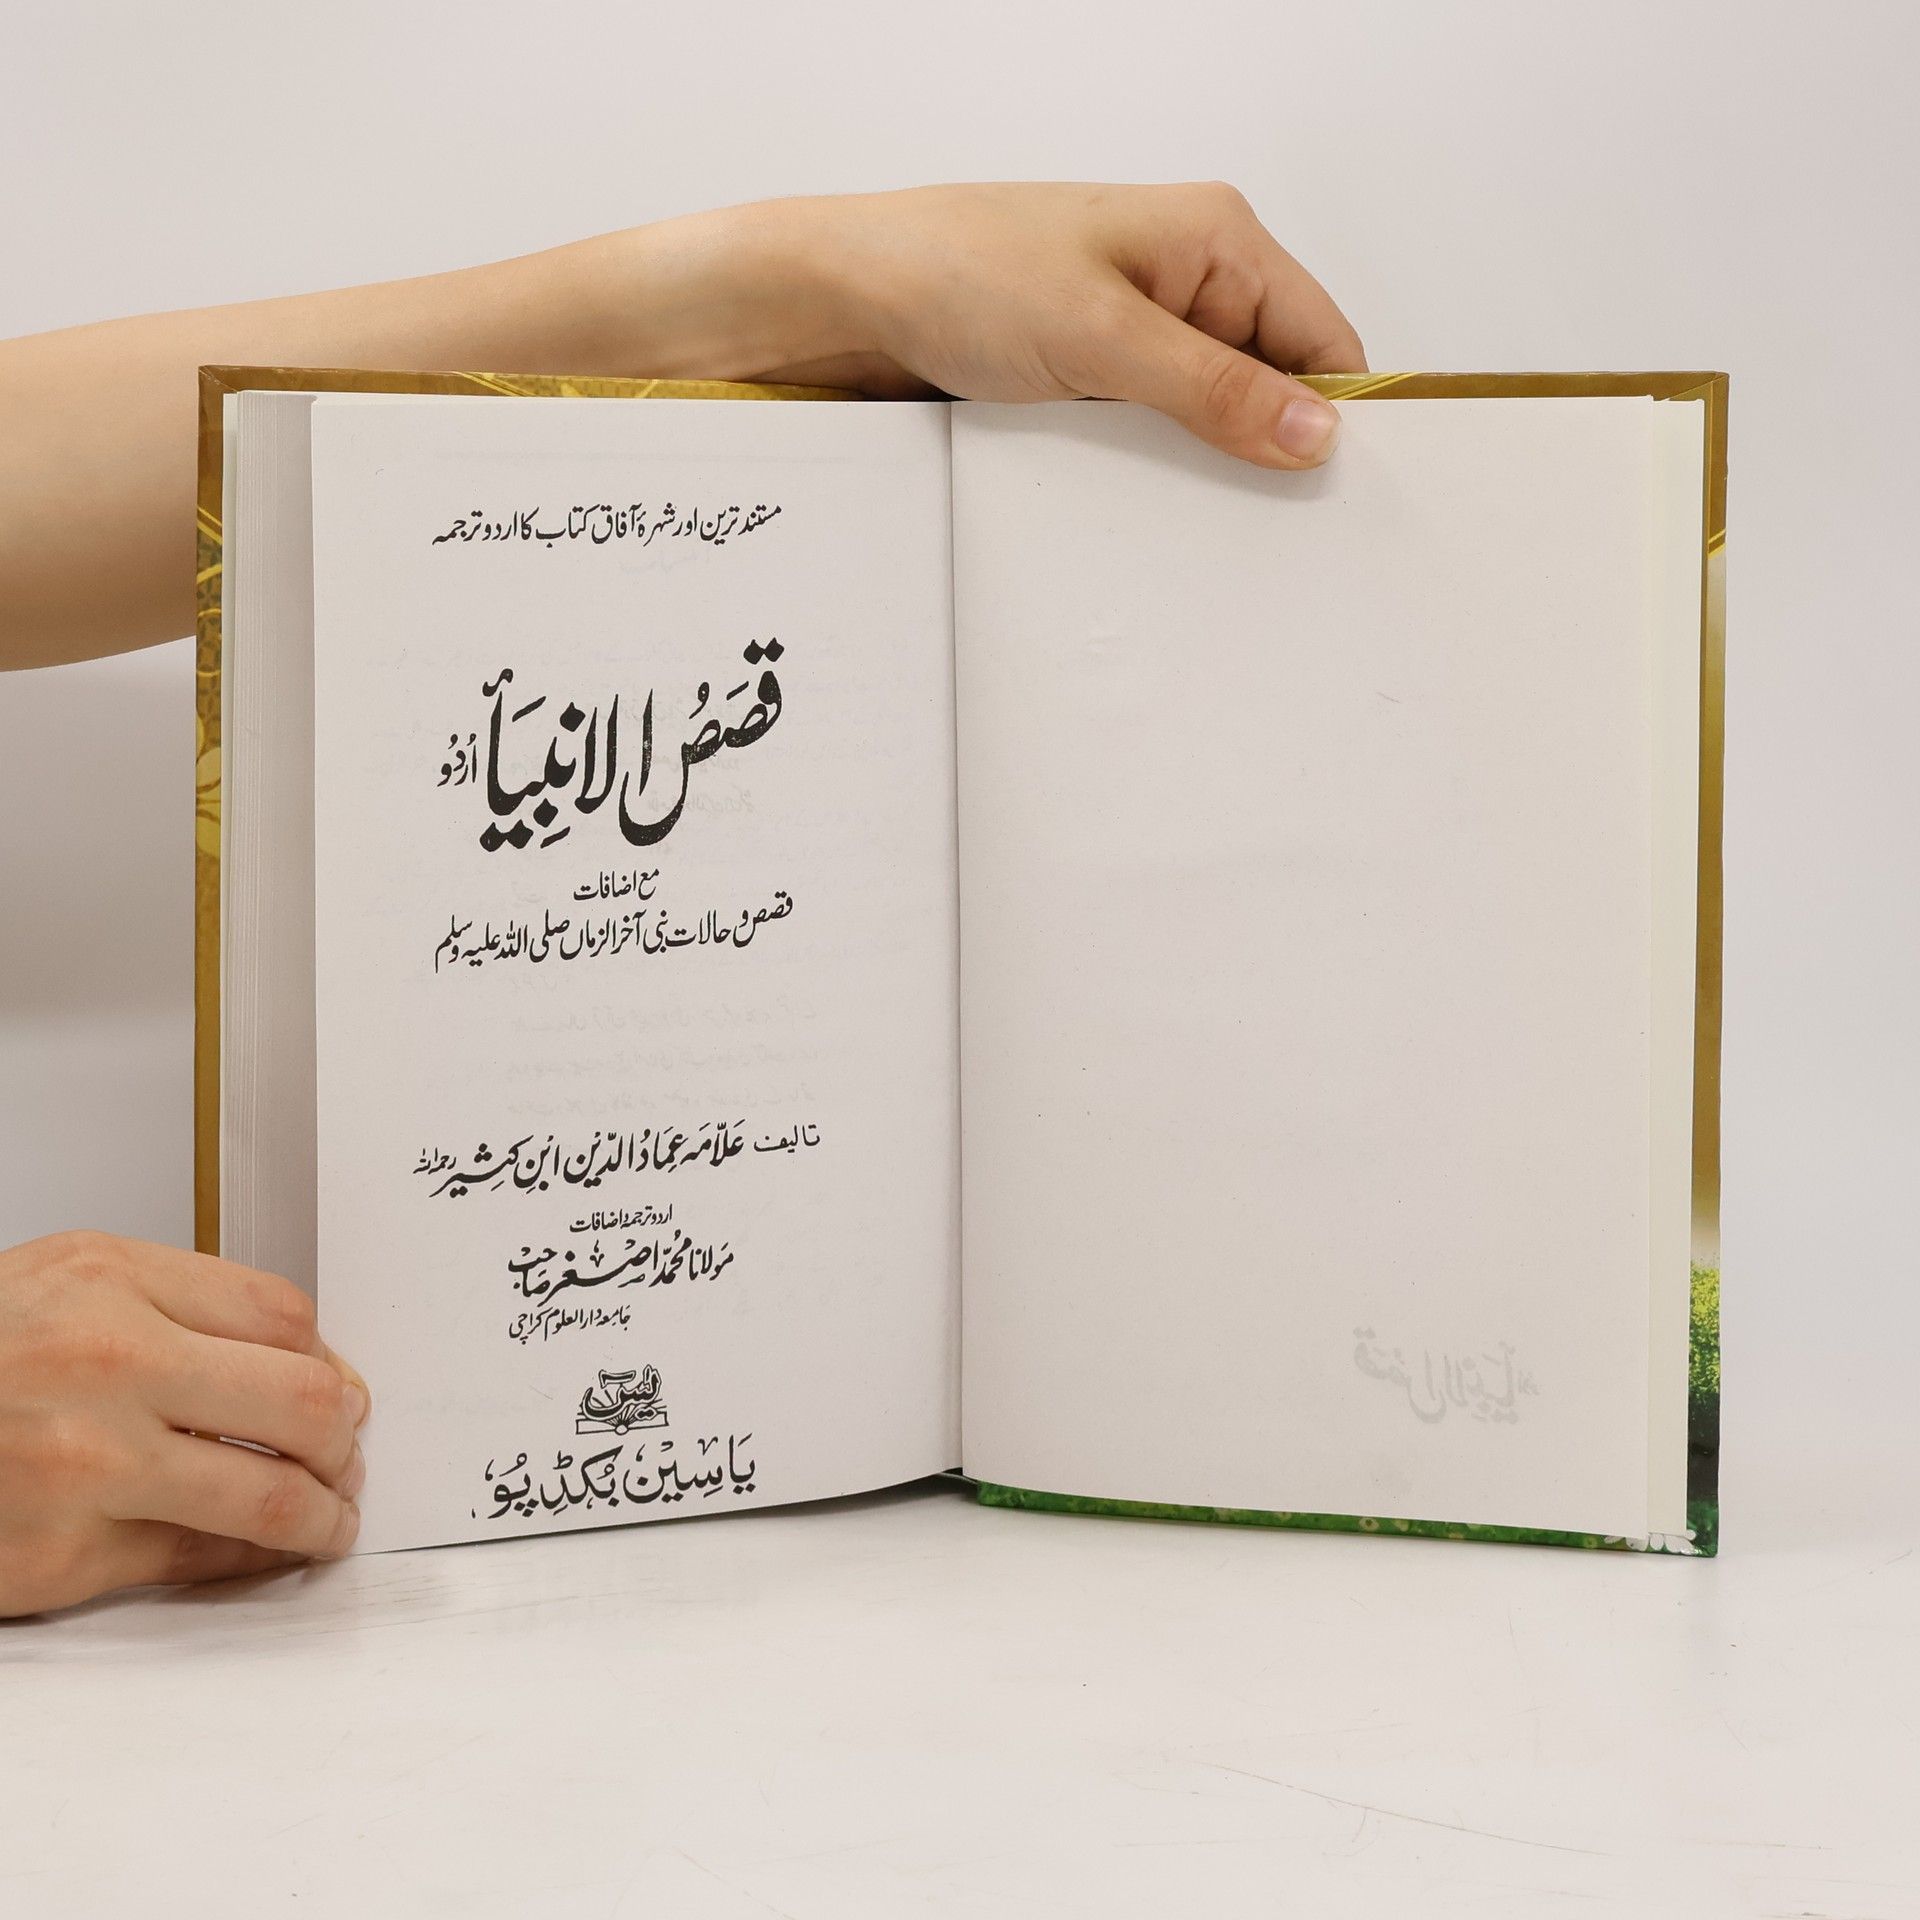 مستند ترین اور شہرۂ آفاق کتاب کا اردو ترجمہ
قَصَصُ الانبِیَأ اُردُو
مع اضافات
قصص و حالات نبی آخر الزماں صلی اللہ علیہ وسلم
تالیف عَلّامَہ عِمَادُ الدّیْن ابْنِ کثِیر رحمہ اللہ
اردو ترجمہ و اضافات
مَولانا مُحمّد اصغر صَاحِبْ
جَامِعہ دار العلوم کراچی
یٰسٓ
یَاسِیْن بُکڈِپُو
قصص الانبیأ